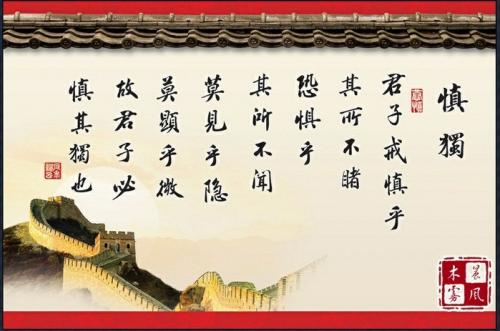 慎獨
君子戒慎乎
其所不睹
恐惧乎
其所不闻
莫見乎隐
莫顯乎微
故君子必
慎其獨也
晨风
木雾